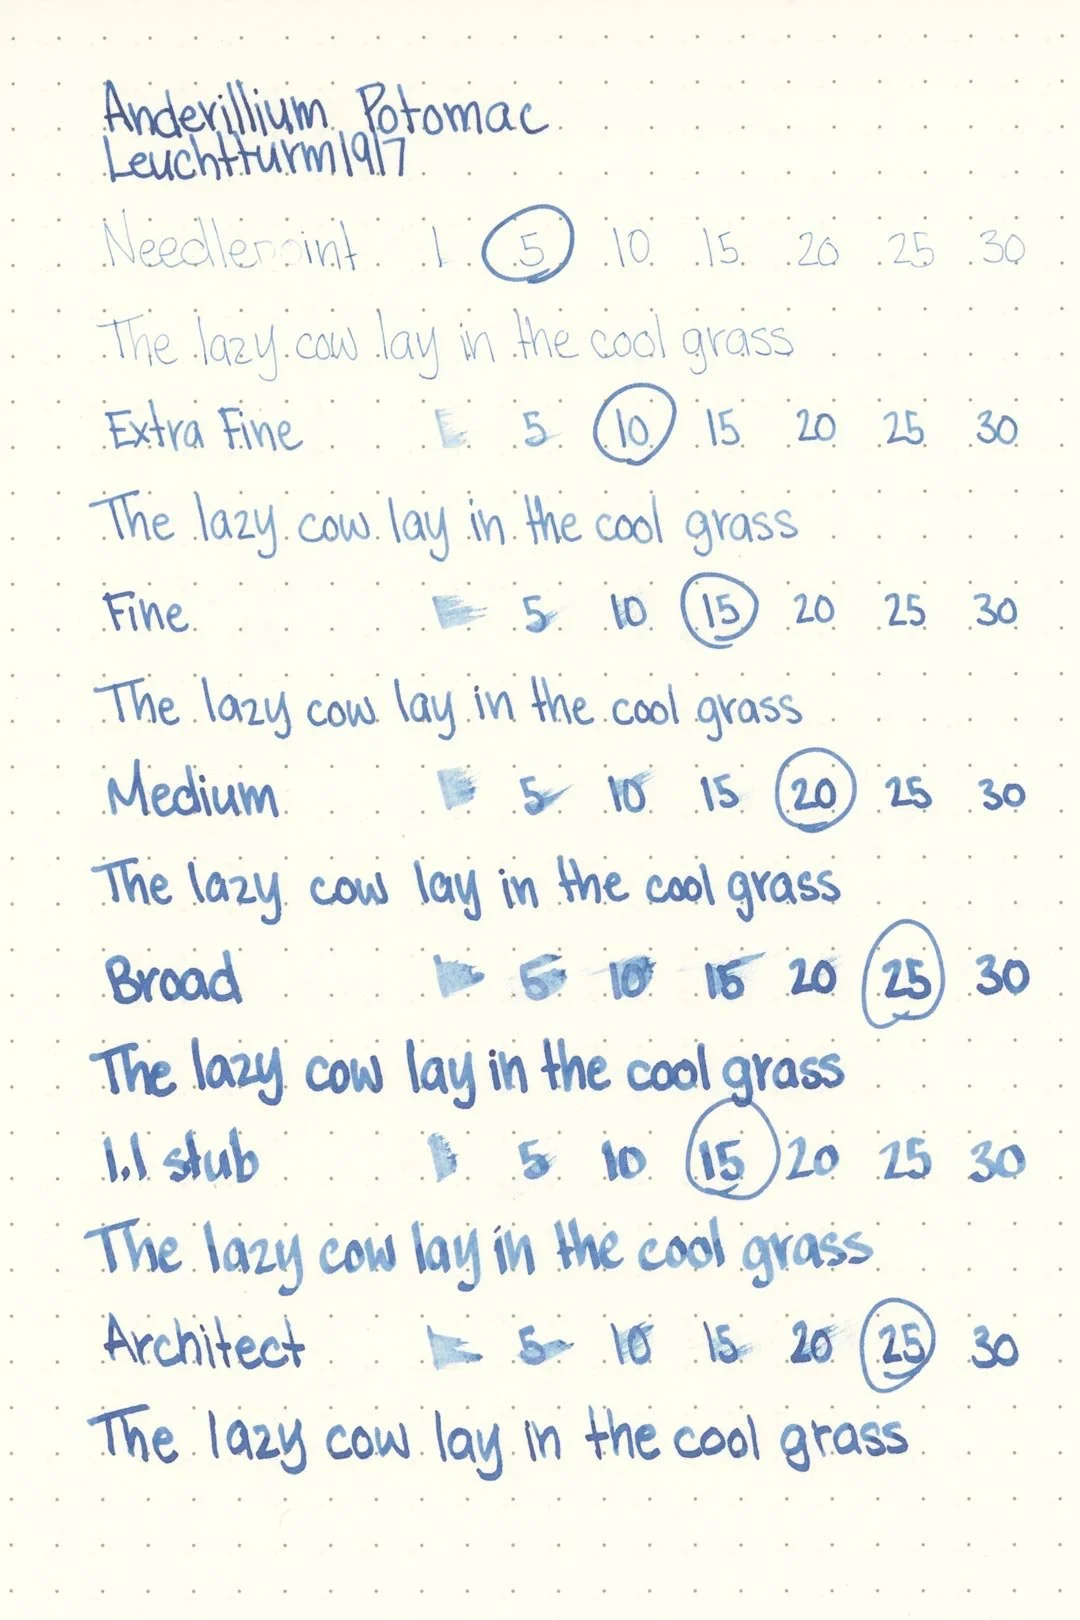 Anderillium Potomac
Leuchtturm1917
Needlepoint 1 5 10 15 20 25 30
The lazy cow lay in the cool grass
Extra Fine 5 10 15 20 25 30
The lazy cow lay in the cool grass
Fine 5 10 15 20 25 30
The lazy cow lay in the cool grass
Medium 5 10 15 20 25 30
The lazy cow lay in the cool grass
Broad 5 10 15 20 25 30
The lazy cow lay in the cool grass
1.1 stub 5 10 15 20 25 30
The lazy cow lay in the cool grass
Architect 5 10 15 20 25 30
The lazy cow lay in the cool grass